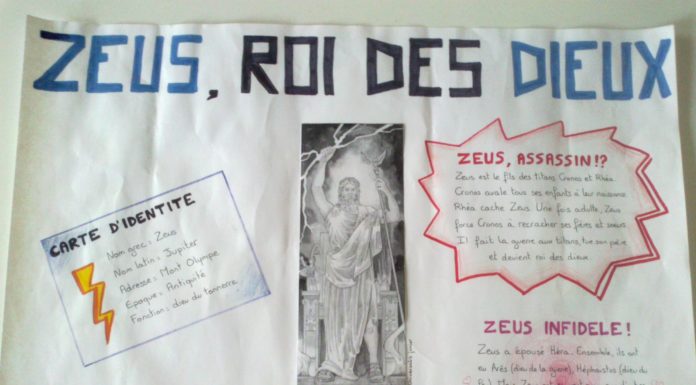 ZEUS, ROI DES DIEUX
CARTE D'IDENTITE
Nom grec = Zeus
Nom latin = Jupiter
Adresse = Mont Olympe
Epoque = Antiquité
Fonction = dieu du tonnerre
ZEUS, ASSASSIN !?
Zeus est le fils des titans Cronos et Rhéa.
Cronos avale tous ses enfants à leur naissance.
Rhéa cache Zeus. Une fois adulte, Zeus
force Cronos à recracher ses frères et soeurs.
Il fait la guerre aux titans, tue son père
et devient roi des dieux.
ZEUS INFIDELE !
Zeus a épousé Héra. Ensemble, ils ont
eu Arès (dieu de la guerre), Héphaïstos (dieu du